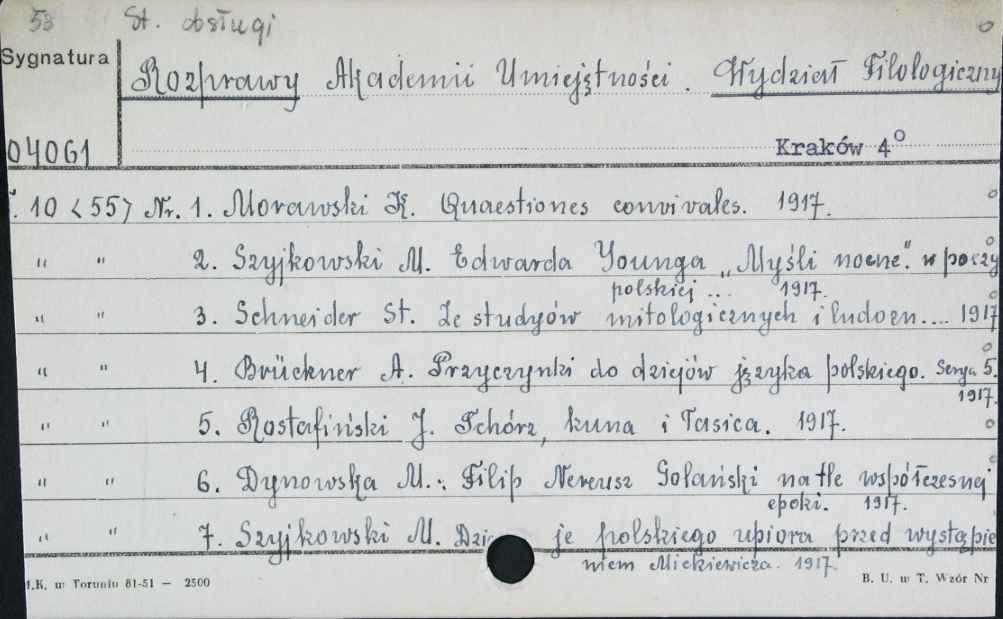 58 St. obsługi
Sygnatura
Rozprawy Akademii Umiejętności. Wydział Filologiczny
04061 Kraków 4°
T. 10 <55> Nr. 1. Morawski K. Quaestiones convivales. 1917.
" " 2. Szyjkowski M. Edwarda Younga „Myśli nocne". w poezy
polskiej ... 1917.
" " 3. Schneider St. Ze studyów mitologicznych i ludozn.... 1917
" " 4. Brückner A. Przyczynki do dziejów języka polskiego. Serya 5.
1917.
" " 5. Rostafiński J. Tchórz, kuna i łasica. 1917.
" " 6. Dynowska M.: Filip Nereusz Golański na tle współczesnej
epoki. 1917.
" " 7. Szyjkowski M. Dzie je polskiego upiora przed wystąpie
niem Mickiewicza. 1917.
I.K. w Toruniu 81-51 — 2500 B. U. w T. Wzór Nr